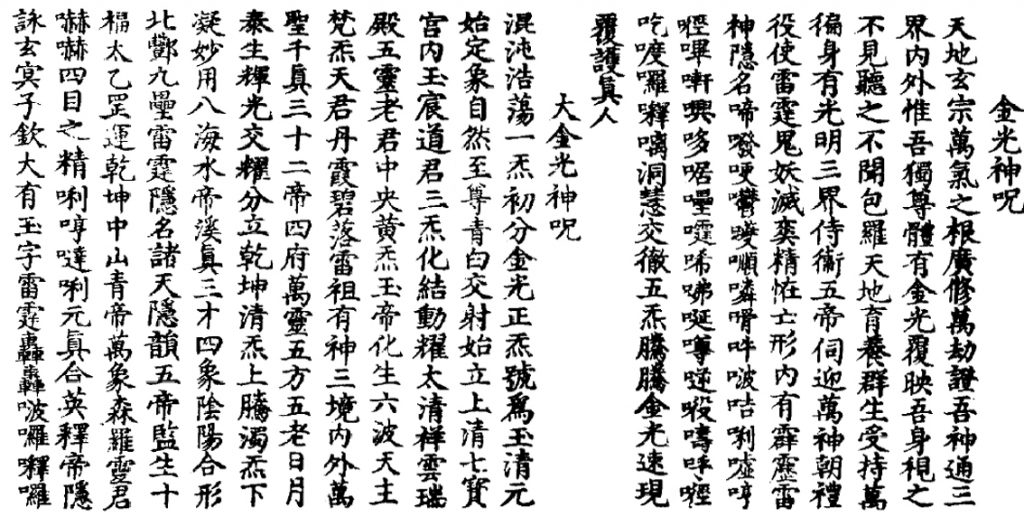 金光神呪
天地玄宗萬氣之根廣修萬劫證吾神通三
界内外惟吾獨尊體有金光覆映吾身視之
不見聽之不聞包羅天地育養群生受持萬
徧身有光明三界侍衛五帝伺迎萬神朝禮
役使雷霆鬼妖滅爽精恠亡形内有霹靂雷
神隱名啼
吃嚤囉釋璃洞慧交徹五炁騰騰金光速現
覆護真人
大金光神呪
混沌浩蕩一炁初分金光正炁號爲玉清元
始定象自然至尊青白交射始立上清七寳
宫内玉宸道君三炁化結動耀太清祥雲瑞
殿五靈老君中央黄炁玉帝化生六波天主
梵炁天君丹霞碧落雷祖有神三境内外萬
聖千真三十二帝四府萬靈五方五老日月
泰生輝光交耀分立乾坤清炁上騰濁炁下
凝妙用八海水帝溪真三才四象陰陽合形
北酆九壘雷霆隱名諸天隱韻五帝監生十
福太乙罡運乾坤中山青帝萬象森羅靈君
嚇嚇四目之精唎㖇噠唎元真合英釋帝隱
詠玄冥子欽大有玉字雷霆轟轟啵囉釋囉